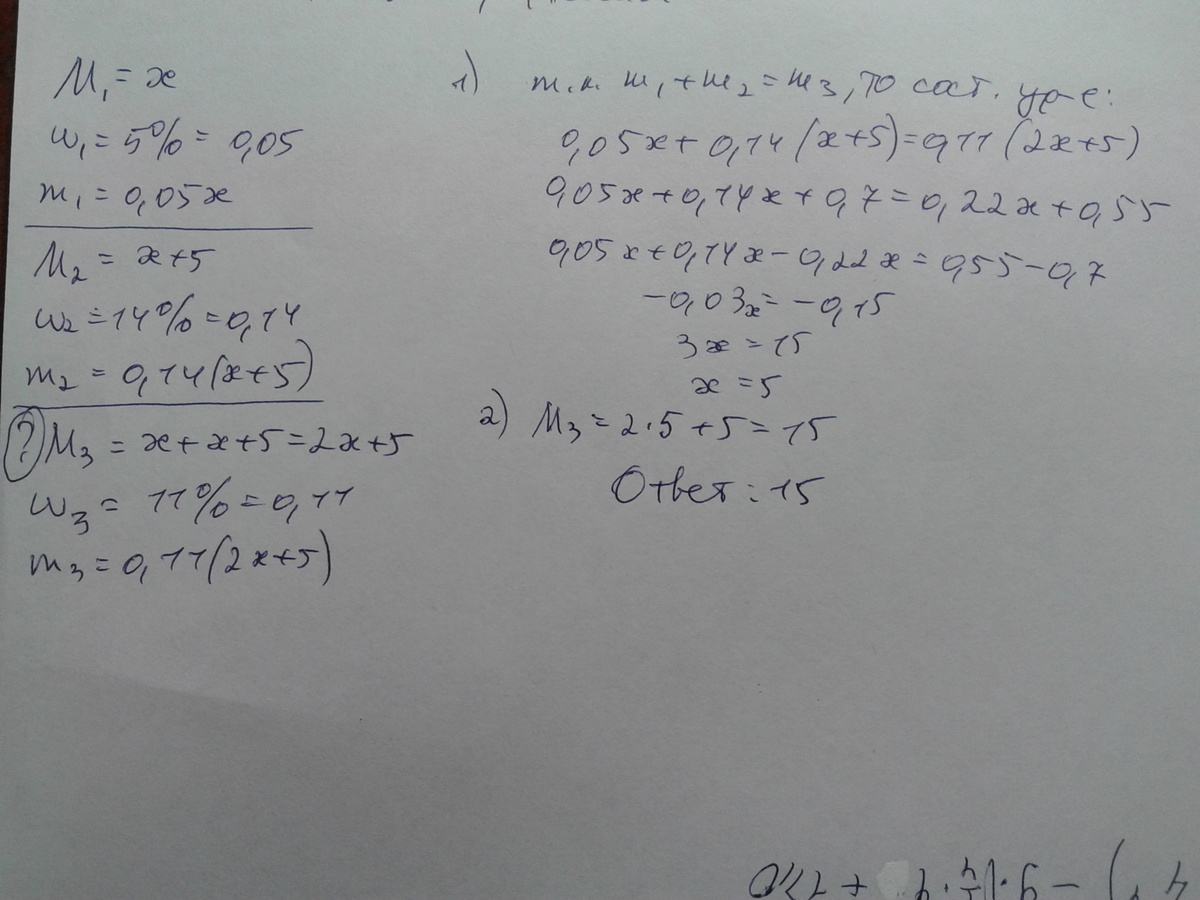 M₁ = x
ω₁ = 5% = 0,05
m₁ = 0,05x
M₂ = x+5
ω₂ = 14% = 0,14
m₂ = 0,14(x+5)
? M₃ = x+x+5=2x+5
ω₃ = 11% = 0,11
m₃ = 0,11(2x+5)
1) т.к. m₁+m₂=m₃, то сост. ур-е:
0,05x+0,14(x+5)=0,11(2x+5)
0,05x+0,14x+0,7=0,22x+0,55
0,05x+0,14x-0,22x=0,55-0,7
-0,03x=-0,15
3x=15
x=5
2) M₃=2·5+5=15
Ответ: 15